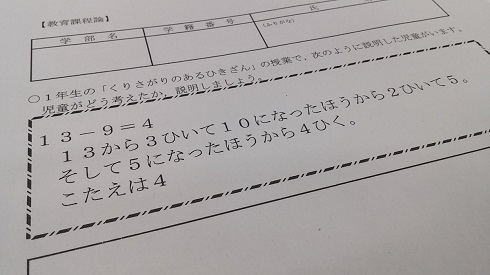 【教育課程論】
学部名 学籍番号 氏
(ふりがな)
○1年生の「くりさがりのあるひきざん」の授業で,次のように説明した児童がいます。
児童がどう考えたか,説明しましょう。
13-9=4
13から3ひいて10になったほうから2ひいて5。
そして5になったほうから4ひく。
こたえは4